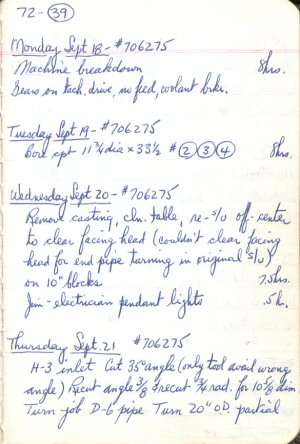 72-39
Monday Sept 18 - #706275
Machine breakdown 8hrs.
Gears on tach. drive, no feed, coolant brkr.
Tuesday Sept 19 - #706275
Bore cpt 11 3/4 dia x 33 1/2 # 2 3 4 8hrs.
Wednesday Sept 20 - #706275
Remove casting, cln. table, re-s/u off-center
to clear facing head (couldn't clear facing
head for end pipe turning in original s/u)
on 10" blocks 7.5hrs.
Jim - electrician pendant lights .5h.
Thursday Sept. 21 #706275
H-3 inlet Cut 35° angle (only tool avail wrong
angle) Recut angle 3/8 & recut 3/4 rad. for 10 5/8 dim
Turn job D-6 pipe Turn 20" O.D. partial